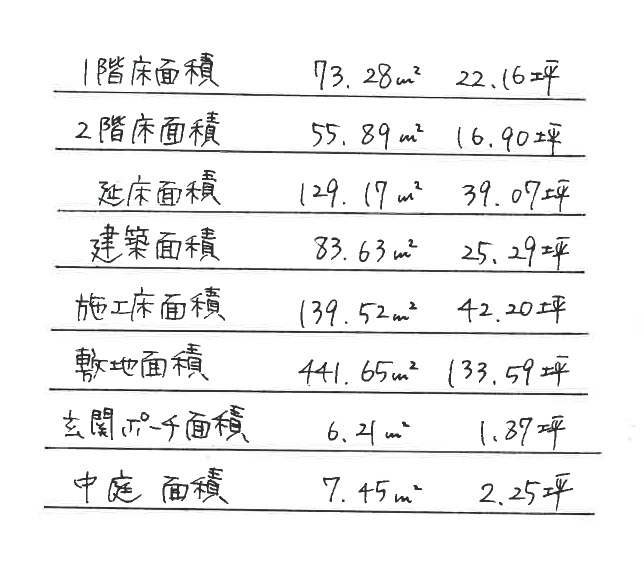 1階床面積 73.28m² 22.16坪
2階床面積 55.89m² 16.90坪
延床面積 129.17m² 39.07坪
建築面積 83.63m² 25.29坪
施工床面積 139.52m² 42.20坪
敷地面積 441.65m² 133.59坪
玄関ポーチ面積 6.21m² 1.87坪
中庭 面積 7.45m² 2.25坪